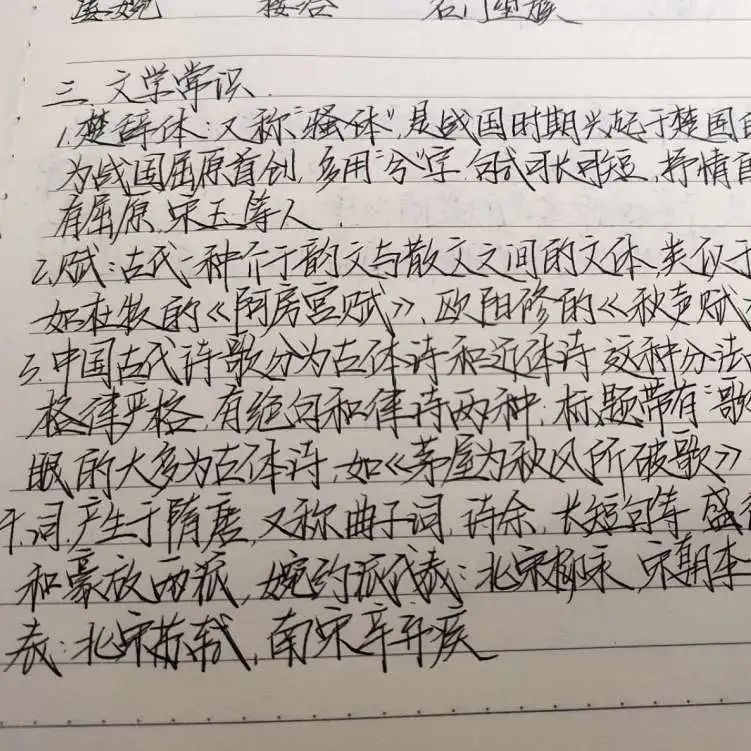 凄婉 接洽
三、文学常识
1.楚辞体:又称"骚体",是战国时期兴起于楚国
为战国屈原首创,多用"兮"字,句式可长可短,抒情
有屈原、宋玉等人
2.赋:古代一种介于韵文与散文之间的文体,类似于
如杜牧的《阿房宫赋》,欧阳修的《秋声赋
3.中国古代诗歌分为古体诗和近体诗,这种分法
格律严格,有绝句和律诗两种;标题带有"歌
眼的大多为古体诗,如《茅屋为秋风所破歌》
4.词,产生于隋唐,又称曲子词,诗余,长短句等,盛
和豪放两派,婉约派代表:北宋柳永,宋朝李
表:北宋苏轼,南宋辛弃疾